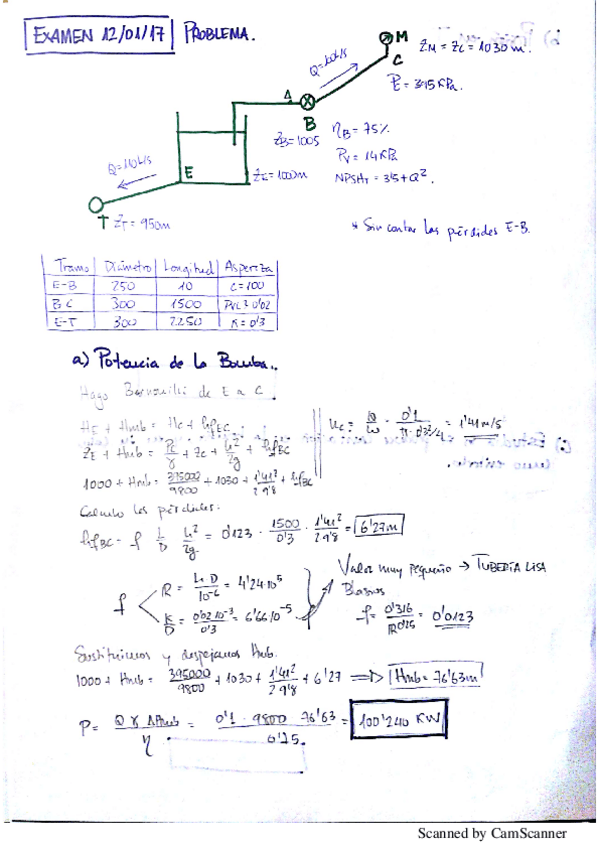 EXAMEN 12/01/17 PROBLEMA.
M
ZM = ZC = 1030 m.
C
Q=100 l/s
A
B
ZB=1005
ηB = 75%
PV = 14 KPa
NPSHr = 3'5+Q².
Q=110 l/s
E
ZE = 1000m
T ZT = 950m
* Sin contar las pérdidas E-B.
Tramo Diámetro Longitud Aspereza
E-B 250 10 C=100
BC 300 1500 PVC=0'02
E-T 300 7.250 K=0'3
a) Potencia de la Bomba..
Hago Bernouilli de E a C.
HE + Hmb = HC + hfEC
ZE + Hmb = PC/γ + ZC + u²/2g + hfBC
1000 + Hmb = 395000/9800 + 1030 + 1'41²/2 9'8 + hfBC
uC = Q/ω = 0'1/π·0'3²/4 = 1'41 m/s
Calculo las pérdidas.
hfBC = f L/D u²/2g = 0'123 · 1500/0'3 · 1'41²/2 9'8 = 6'27m
f
R = u D/10⁻⁶ = 4'24·10⁵
K/D = 0'02·10⁻³/0'3 = 6'66·10⁻⁵
Valor muy pequeño → TUBERÍA LISA
Blasius
f = 0'316/R^0'25 = 0'0123
Sustituimos y despejamos Hmb.
1000 + Hmb = 395000/9800 + 1030 + 1'41²/2 9'8 + 6'27 => Hmb = 76'63m
P = Q γ Hmb/η = 0'1 · 9800 76'63/0'75 = 100'240 KW
Scanned by CamScanner